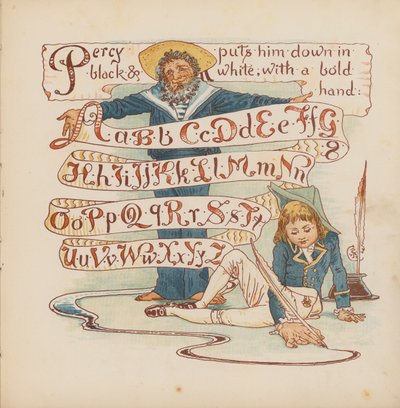 Percy puts him down in
black & white, with a bold
hand:
Aa Bb Cc Dd Ee Ff G
g
Hh Ii Jj Kk Ll Mm Nn
Oo Pp Qq Rr Ss Tt
Uu Vv Ww Xx Yy Z